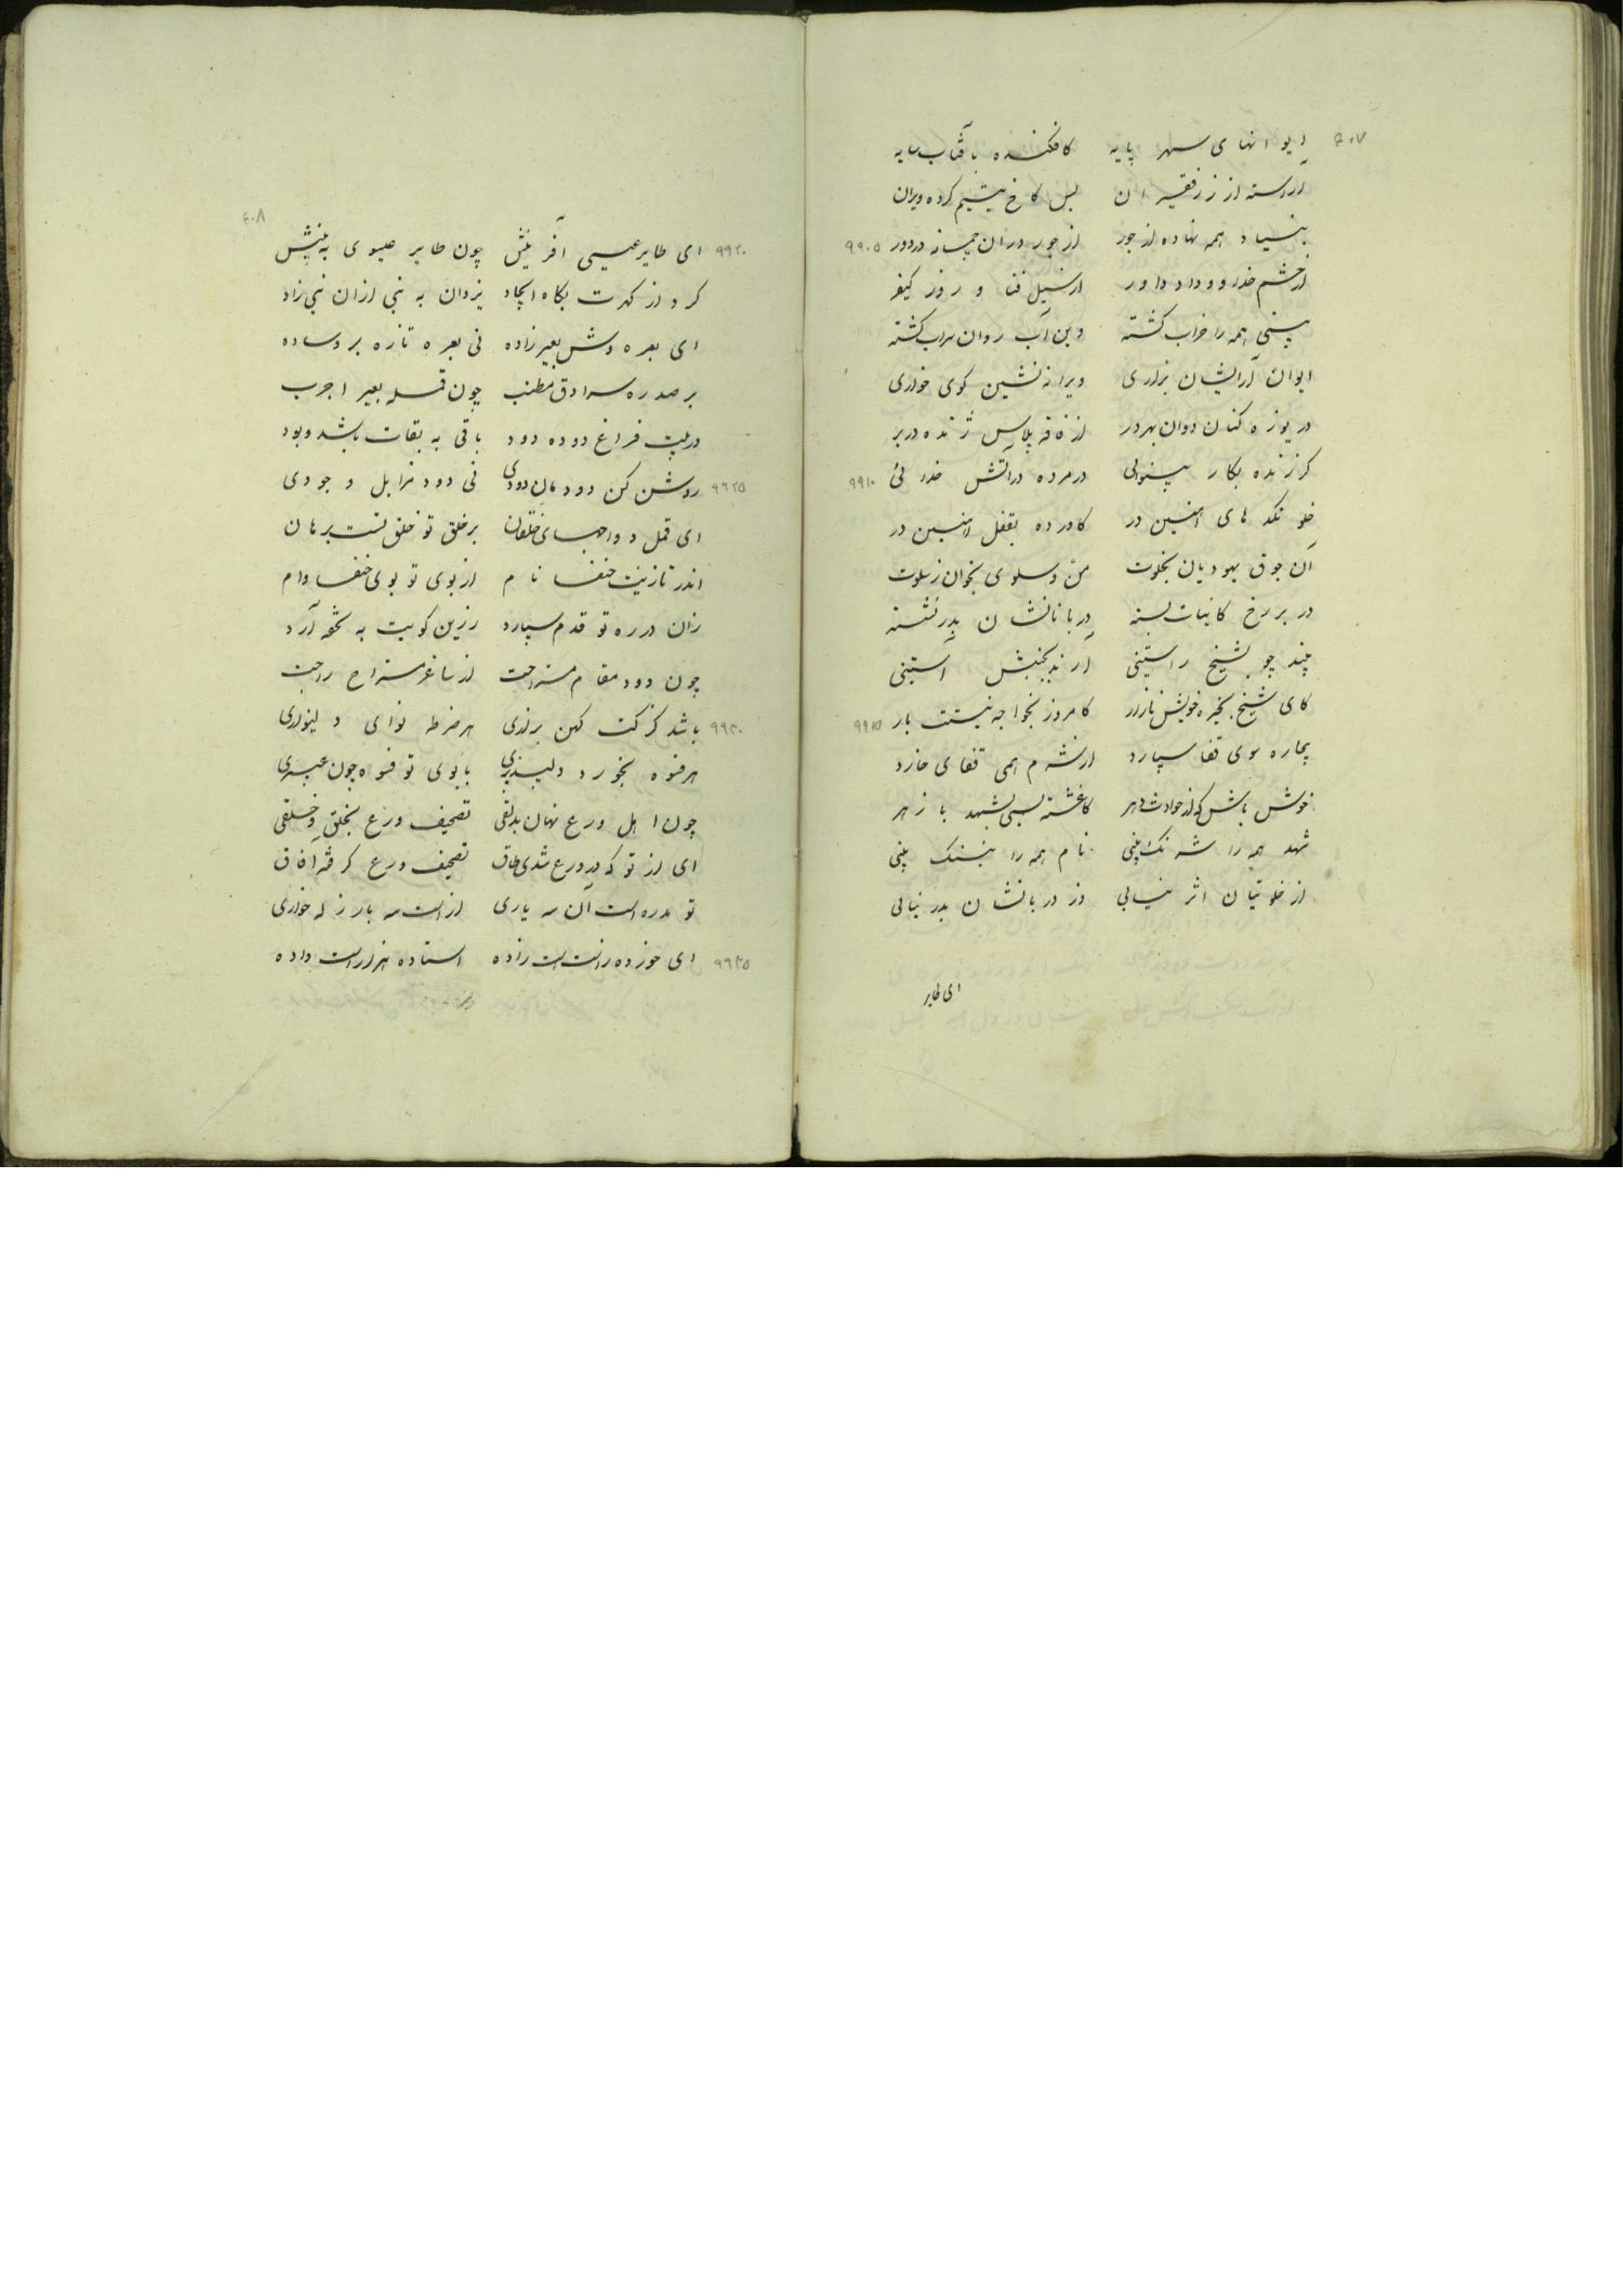 ۴۰۷
ایوانهای سپهر پایه کافکنده بآفتاب سایه
آراسته از زر فقیران بس کاخ یتیم کرده ویران
بنیاد همه نهاده از جور از جور در آن چمانه در دور ۹۹۰۵
از خشم خدا و داد داور از سیل فنا و روز کیفر
بینی همه را خراب گشته وین آب روان سراب گشته
ایوان آرایشان بزاری ویرانه نشین کوی خواری
دریوزه کنان دوان بهر در از فاقه پلاس ژنده در بر
کز زنده بکار بینوایی در مرده در آتش خدایی ۹۹۱۰
خلوتکدهای آهنین در کاورده بقفل آهنین در
آن جوق یهودیان بخلوت من و سلوی بخوان ز بلوت
در بر رخ کاینات بسته دربانانشان بدر نشسته
چند چو بشیخ راستینی آرند بجنبش آستینی
کای شیخ بخیره خویش مازار کامروز بخواجه نیستت بار ۹۹۱۵
بیچاره سوی قفا سپارد از شرم همی قفای خارد
خوش باش که از حوادث دهر کاغشته بسی بشهد با زهر
شهد همه را شرنگ بینی نام همه را بننگ بینی
از خلوتیان اثر نیابی وز دربانشان بدر نیابی
ای طایر
۴۰۸
۹۹۲۰ ای طایر عیسی آفرینش چون طایر عیسوی به بینش
کرد از کهرت بگاه ایجاد یزدان به نبی از آن نبی زاد
ای بعره دوش بعیر زاده نی بعره تازه بر وساده
بر صدره سرادق مطنب چون قمله بعیر اجرب
در بیت فراغ دوده دود باقی به بقات باشد و بود
۹۹۲۵ روشن کن دودمان دودی نی دود مزابل وجودی
ای قمل و واجبسای خلقان بر خلق تو خلق تست برهان
اندر تازیت خنفسا نام از بوی تو بوی خنفسا وام
زان در ره تو قدم سپارد زین کویت به تحفه آرد
چون دود مقام مستراحت از ساغر مستراح راحت
۹۹۳۰ باشد کز کت کهن برازی هر ضرطه نوای دلنوازی
هر فسوه بخورد دلپذیری با بوی تو فسوه چون عبیری
چون اهل ورع نهان بدلقی تصحیف ورع بخلق و خلقی
ای از تو که در ورع شدی طاق تصحیف ورع گرفته آفاق
تو مدره است آن سه یاری از است سه بار زله خواری
۹۹۳۵ ای خورده ز است است زاده استاده هزار است داده